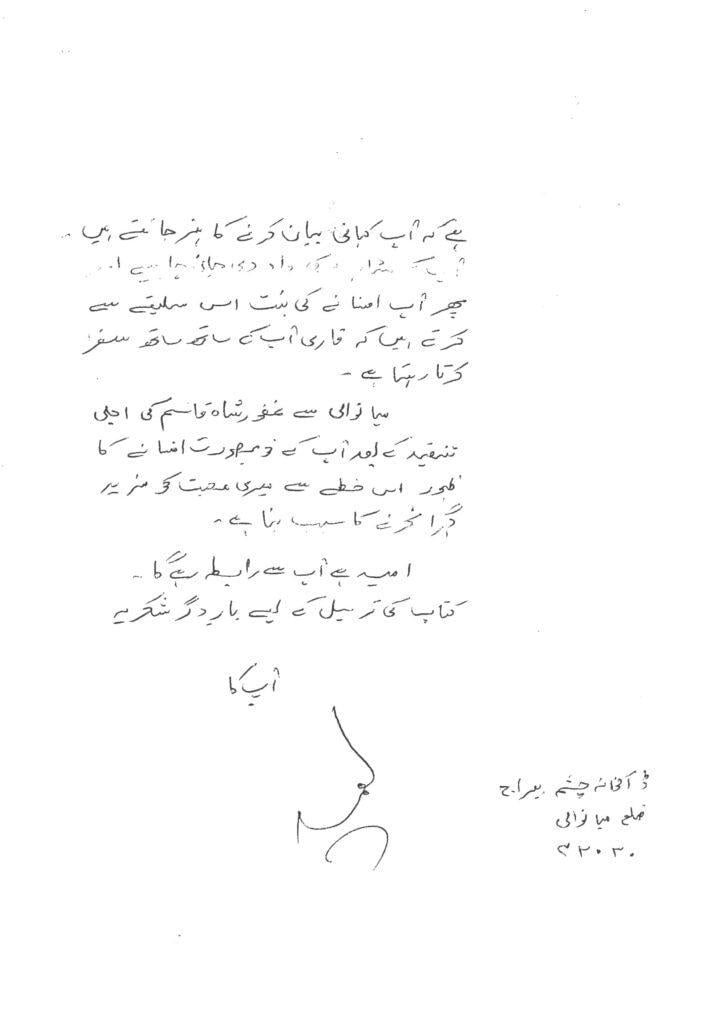 ہے کہ آپ کہانی بیان کرنے کا ہنر جانتے ہیں ۔
آپ کے کی داد دی جانی چاہیے اور
پھر آپ افسانے کی بُنت اس سلیقے سے
کرتے ہیں کہ قاری آپ کے ساتھ ساتھ سفر
کرتا رہتا ہے ۔
میانوالی سے غفور شاہ قاسم کی اچھی
تنقید کے بعد آپ کے خوبصورت افسانے کا
ظہور اس خطے سے میری محبت کو مزید
گہرا کرنے کا سبب بنا ہے ۔
امید ہے آپ سے رابطہ رہے گا ۔
کتاب کی ترسیل کے لیے بارِ دگر شکریہ
آپ کا
ڈاکخانہ چشمہ بیراج
ضلع میانوالی